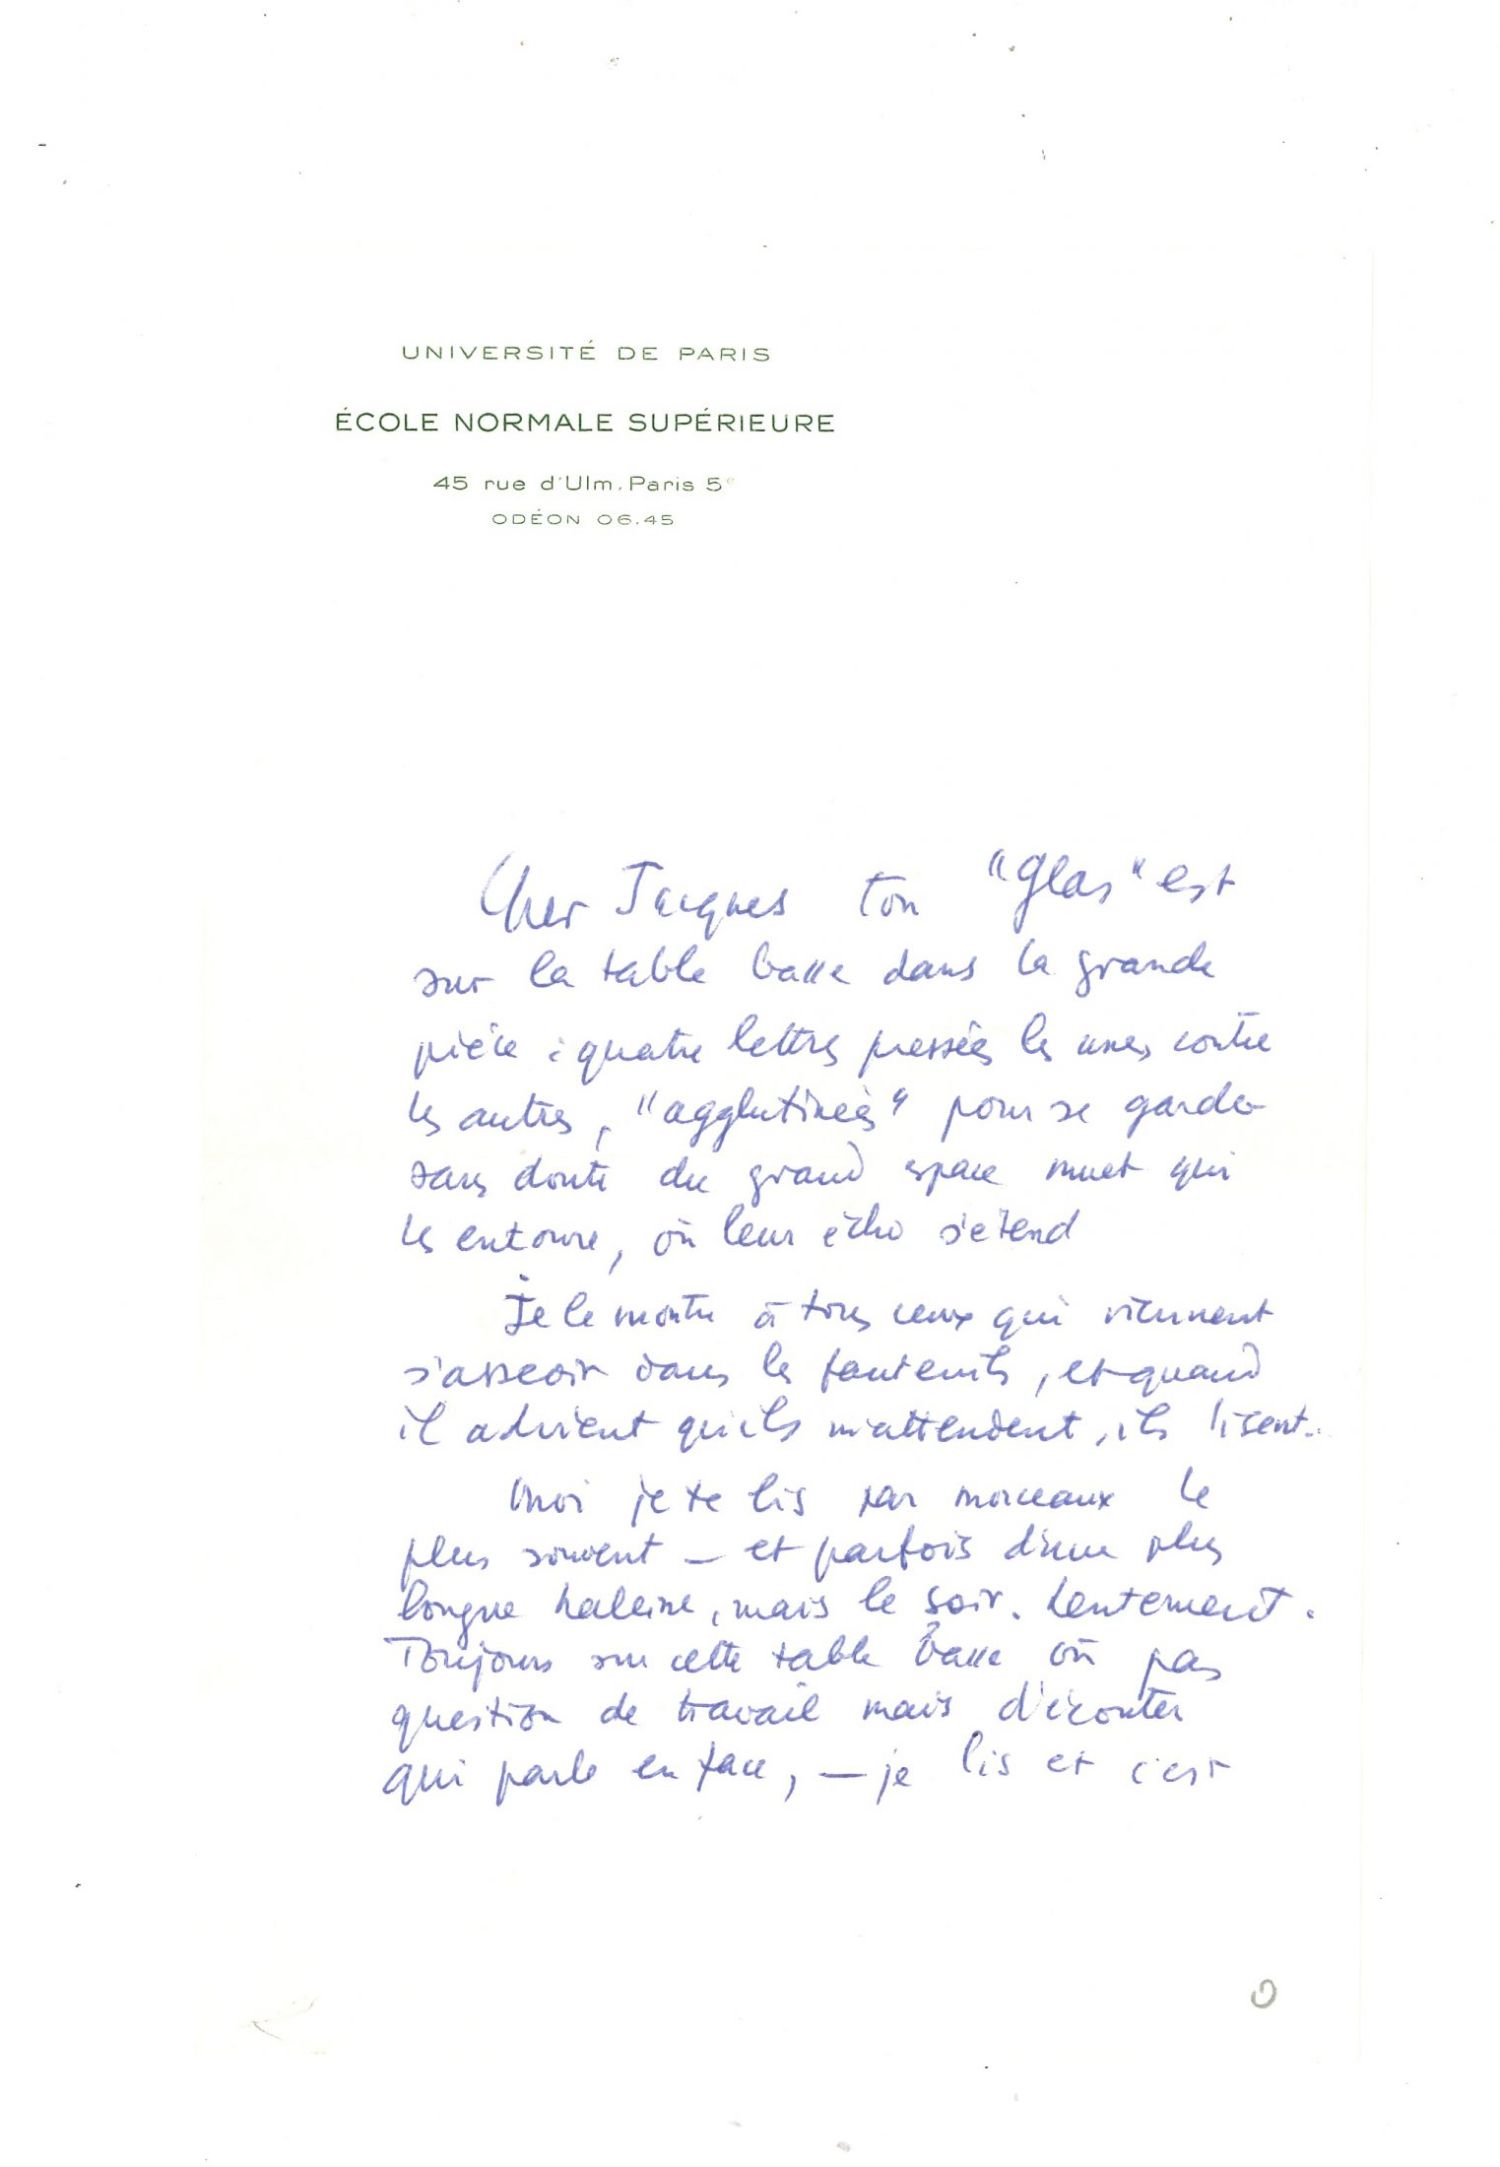 UNIVERSITÉ DE PARIS
ÉCOLE NORMALE SUPÉRIEURE
45 rue d'Ulm. Paris 5e
ODÉON 06.45
Cher Jacques ton "Glas" est
sur la table basse dans la grande
pièce : quatre lettres pressées les unes contre
les autres, "agglutinées" pour se garder
sans doute du grand espace muet qui
les entoure, où leur écho s'étend
Je le montre à tous ceux qui viennent
s'asseoir dans les fauteuils, et quand
il advient qu'ils m'attendent, ils lisent..
Moi je te lis par morceaux le
plus souvent — et parfois d'une plus
longue haleine, mais le soir. Lentement.
Toujours sur cette table basse où pas
question de travail mais d'écouter
qui parle en face, — je lis et c'est